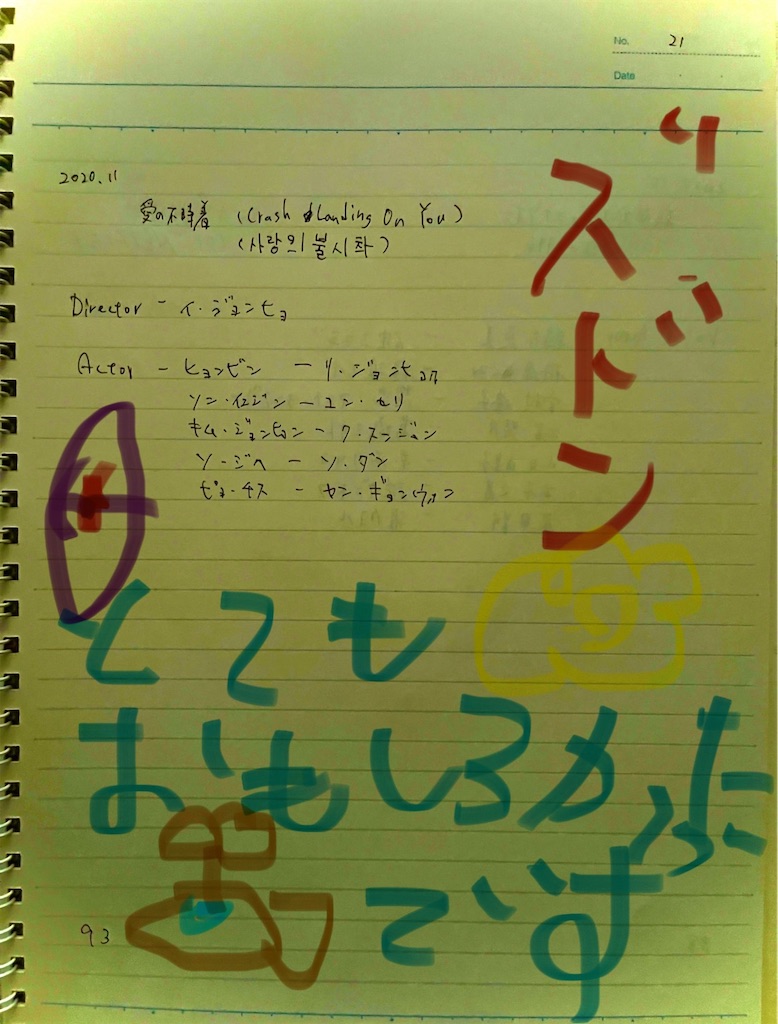 No. 21
Date
2020.11
愛の不時着 (Crash Landing On You)
(사랑의 불시착)
Director - イ・ジョンヒョ
Actor - ヒョンビン - リ・ジョンヒョク
ソン・イェジン - ユン・セリ
キム・ジョンヒョン - ク・スンジュン
ソ・ジヘ - ソ・ダン
ピョ・チス - ヤン・ギョンウォン
ズドン
とても
おもしろかった
です
93